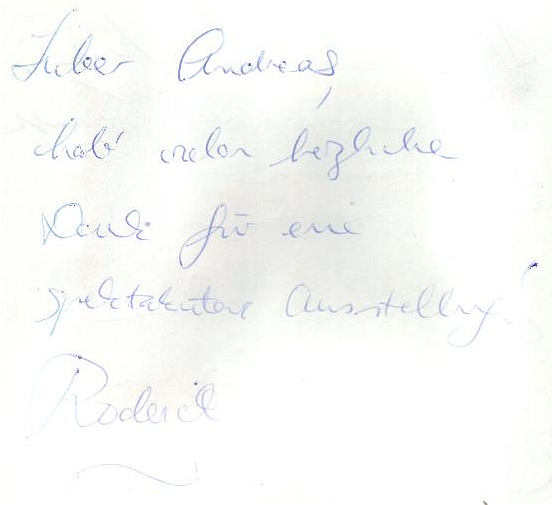 Lieber Andreas,
hab' vielen herzlichen
Dank für eine
spektakuläre Ausstellung!
Roderick